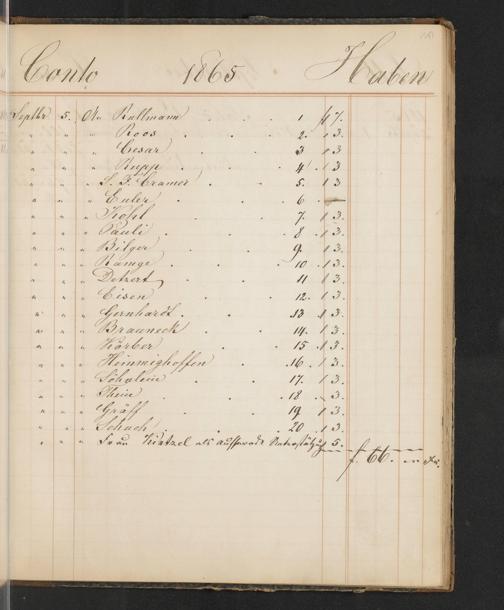 Conto 1865 Haben
Septbr 5. An Rullmann 1 f 7.
" " " " Roos 2. 1 3.
" " " " Cesar 3 1 3
" " " " Rupp 4 1 3
" " " S. F. Cramer 5. 1 3
" " " " Euler 6 —
" " " Kohl 7. 1 3.
" " " Pauli 8 1 3.
" " " Bilger 9. 1 3.
" " " Ramge 10 1 3.
" " " Detzert 11 1 3.
" " " Eisen 12. 1 3.
" " " Gernhardt 13 1 3.
" " " Brauneck 14. 1 3.
" " " Körber 15 1 3.
" " " Heimmighoffen 16. 1 3.
" " " Schulein 17. 1 3.
" " " Thein 18 3.
" " " Gräff 19 1 3.
" " " Schuch 20. 1 3
" " " Frau Kürtzel als 5.
f. 66. — Kr.